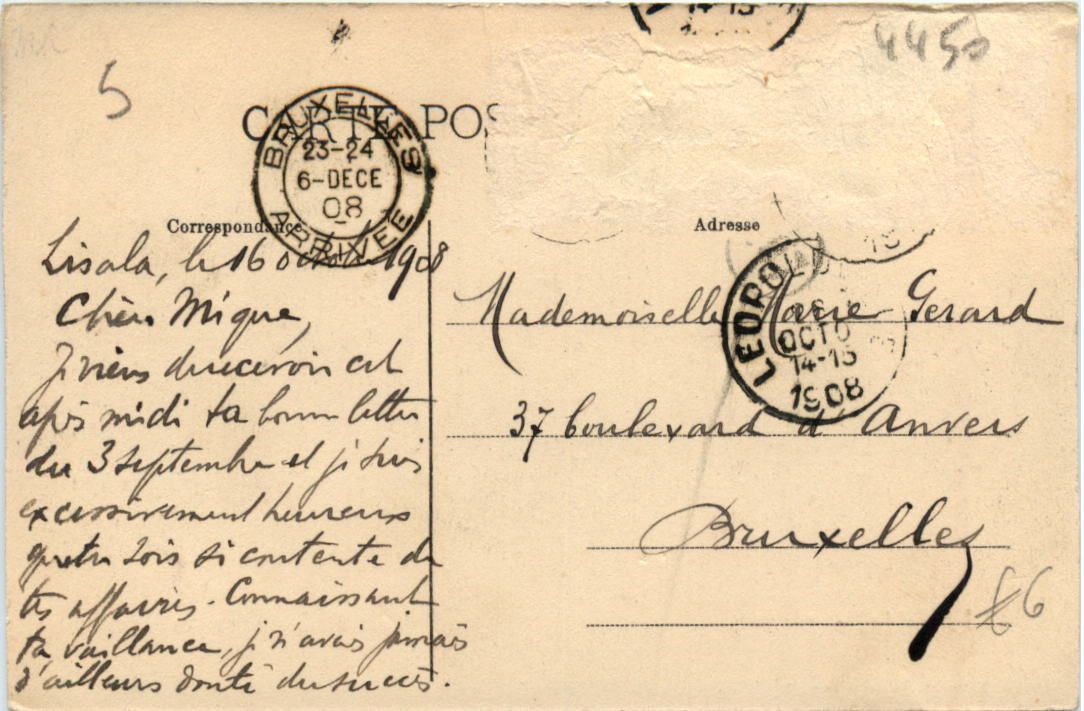 4450
5
CARTE POS
BRUXELLES
23-24
6-DECE
08
ARRIVEE
14-15
Correspondance
Lisala, le 16 octobre 1908
Chère Mique,
Je viens de recevoir cet
après midi ta bonne lettre
du 3 septembre et je suis
excessivement heureux
que tu sois si contente de
tes affaires. Connaissant
ta vaillance, je n'avais jamais
d'ailleurs douté du succès.
Adresse
LEOPOLDV
OCTO
14-15
1908
Mademoiselle Marie Gerard
37 boulevard d'Anvers
Bruxelles
£6